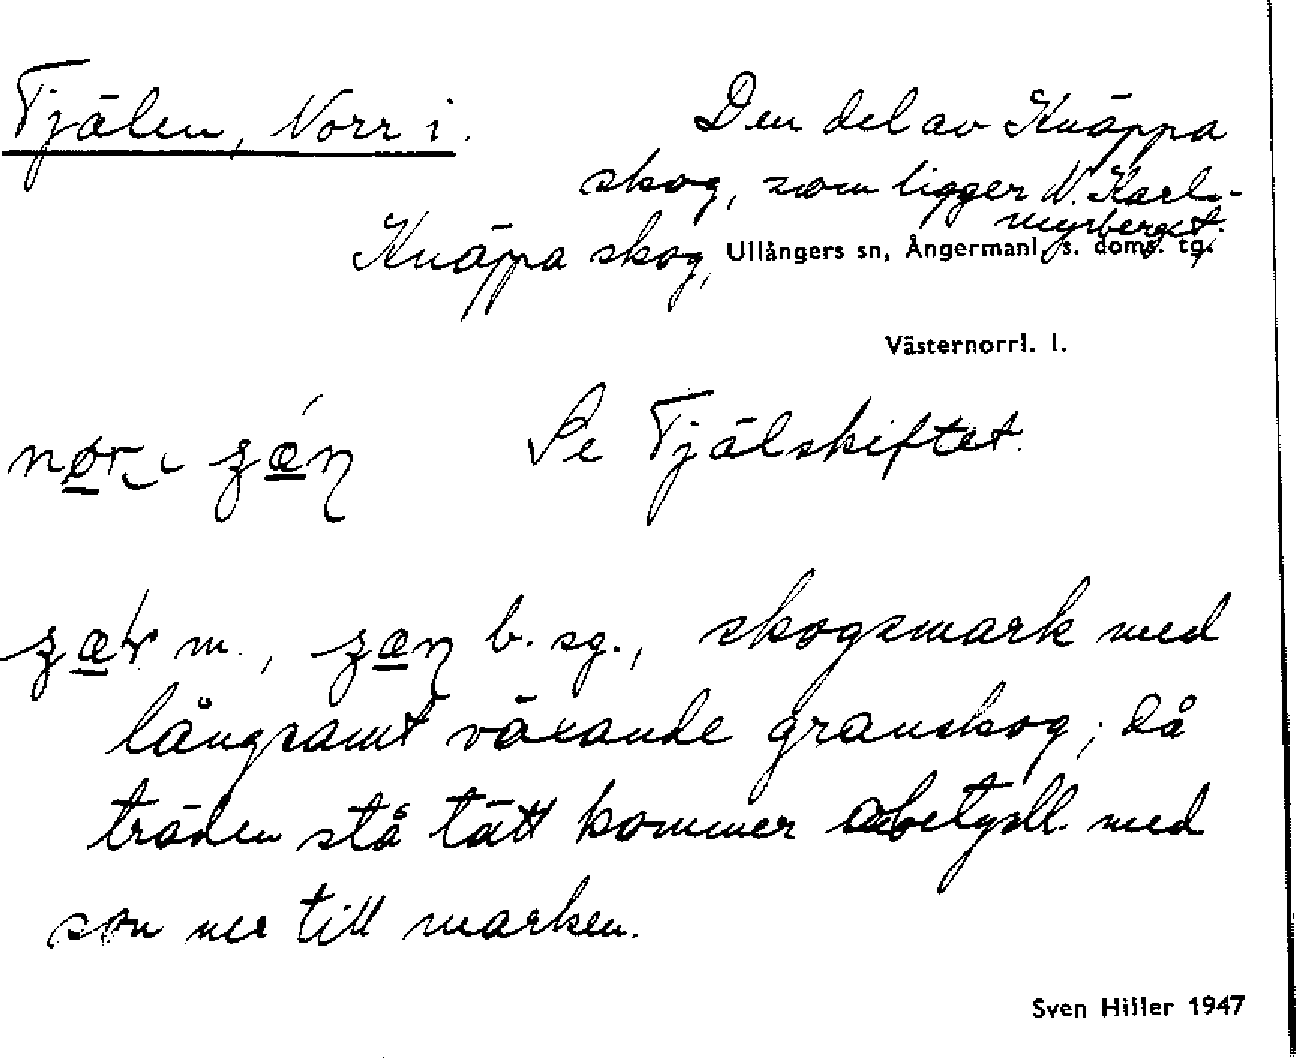 Tjälen, Norr i.
Den del av Knäppa
skog, som ligger N. Karl-
myrberget.
Knäppa skog, Ullångers sn, Ångermanl. s. doms. tg.
Västernorrl. l.
Se Tjälskiftet.
m., b. sg., skogsmark med
långsamt växande granskog; då
träden stå tätt kommer obetydl. med
snö ner till marken.
Sven Hiller 1947